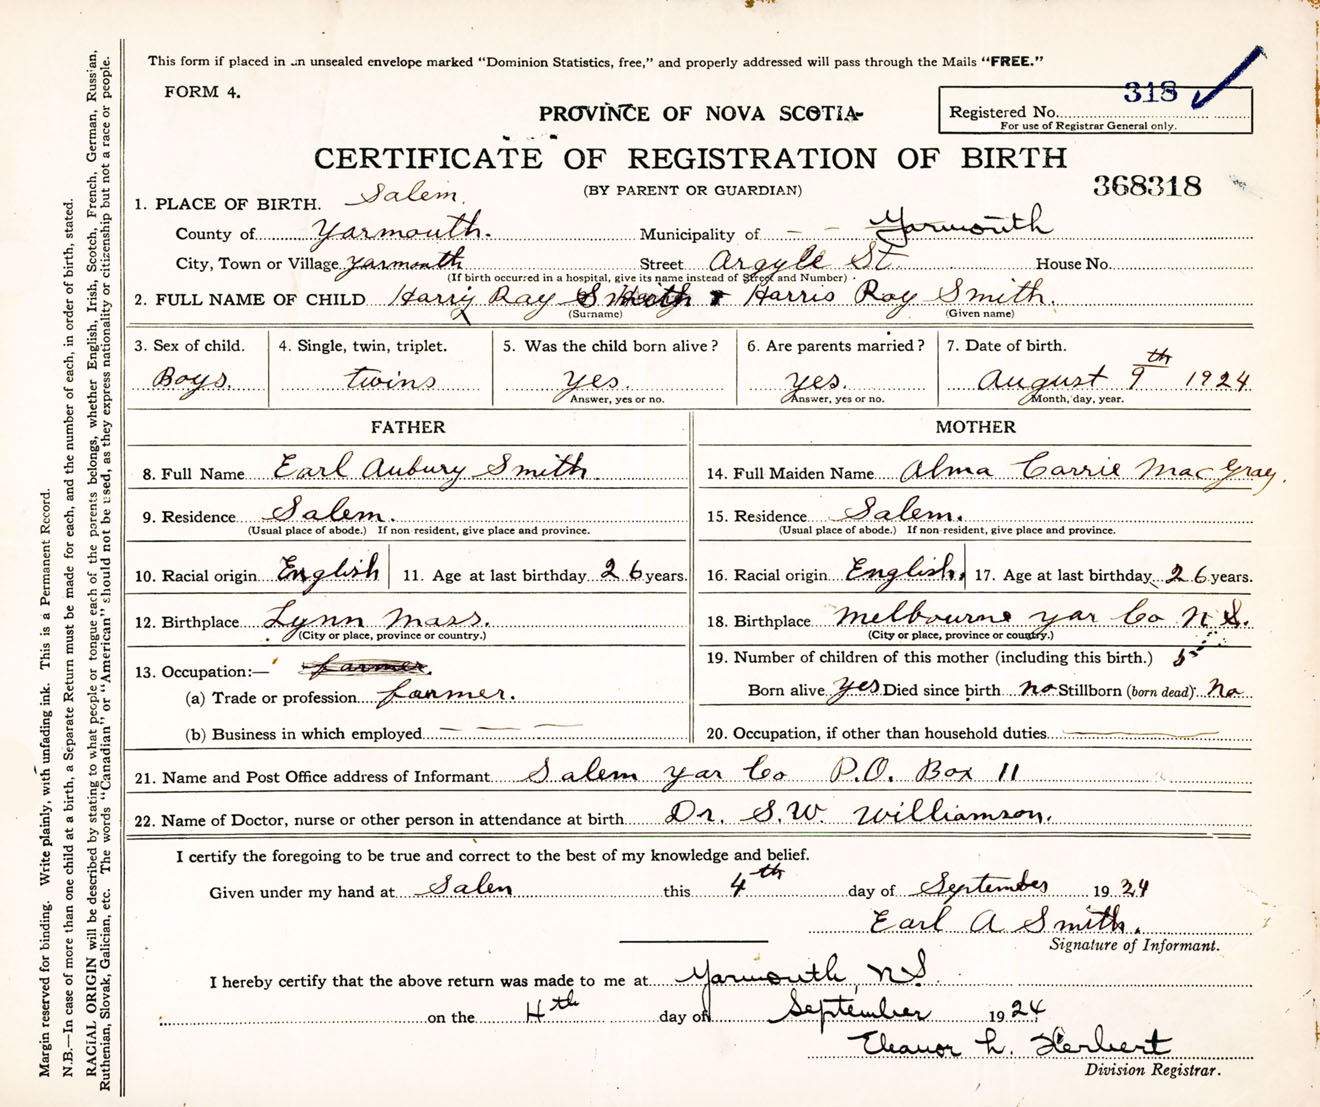 This form if placed in an unsealed envelope marked "Dominion Statistics, free," and properly addressed will pass through the Mails "FREE."
FORM 4.
318
PROVINCE OF NOVA SCOTIA
Registered No.
For use of Registrar General only.
CERTIFICATE OF REGISTRATION OF BIRTH
(BY PARENT OR GUARDIAN)
368318
1. PLACE OF BIRTH. Salem.
County of Yarmouth. Municipality of Yarmouth
City, Town or Village Yarmouth Street Argyle St. House No.
(If birth occurred in a hospital, give its name instead of Street and Number)
2. FULL NAME OF CHILD Harry Ray Smith & Harris Roy Smith.
(Surname) (Given name)
3. Sex of child. 4. Single, twin, triplet. 5. Was the child born alive? 6. Are parents married? 7. Date of birth.
Boys. twins yes. yes. August 9th 1924
Answer, yes or no. Answer, yes or no. Month, day, year.
FATHER MOTHER
8. Full Name Earl Aubury Smith. 14. Full Maiden Name Alma Carrie MacGray.
9. Residence Salem. 15. Residence Salem.
(Usual place of abode.) If non-resident, give place and province. (Usual place of abode.) If non-resident, give place and province.
10. Racial origin English 11. Age at last birthday 26 years. 16. Racial origin English. 17. Age at last birthday 26 years.
12. Birthplace Lynn Mass. 18. Birthplace Melbourne Yar Co N.S.
(City or place, province or country.) (City or place, province or country.)
13. Occupation:— farmer. 19. Number of children of this mother (including this birth.) 5
(a) Trade or profession farmer. Born alive yes Died since birth no Stillborn (born dead) no
(b) Business in which employed 20. Occupation, if other than household duties
21. Name and Post Office address of Informant Salem Yar Co P.O. Box 11
22. Name of Doctor, nurse or other person in attendance at birth Dr. S.W. Williamson.
I certify the foregoing to be true and correct to the best of my knowledge and belief.
Given under my hand at Salem this 4th day of September 1924
Earl A Smith.
Signature of Informant.
I hereby certify that the above return was made to me at Yarmouth, N.S.
on the 4th day of September 1924
Eleanor L. Herbert
Division Registrar.
Margin reserved for binding. Write plainly, with unfading ink. This is a Permanent Record.
N.B.—In case of more than one child at a birth, a Separate Return must be made for each, and the number of each, in order of birth, stated.
RACIAL ORIGIN will be described by stating to what people or tongue each of the parents belongs, whether English, Irish, Scotch, French, German, Russian,
Ruthenian, Slovak, Galician, etc. The words "Canadian" or "American" should not be used, as they express nationality or citizenship but not a race or people.